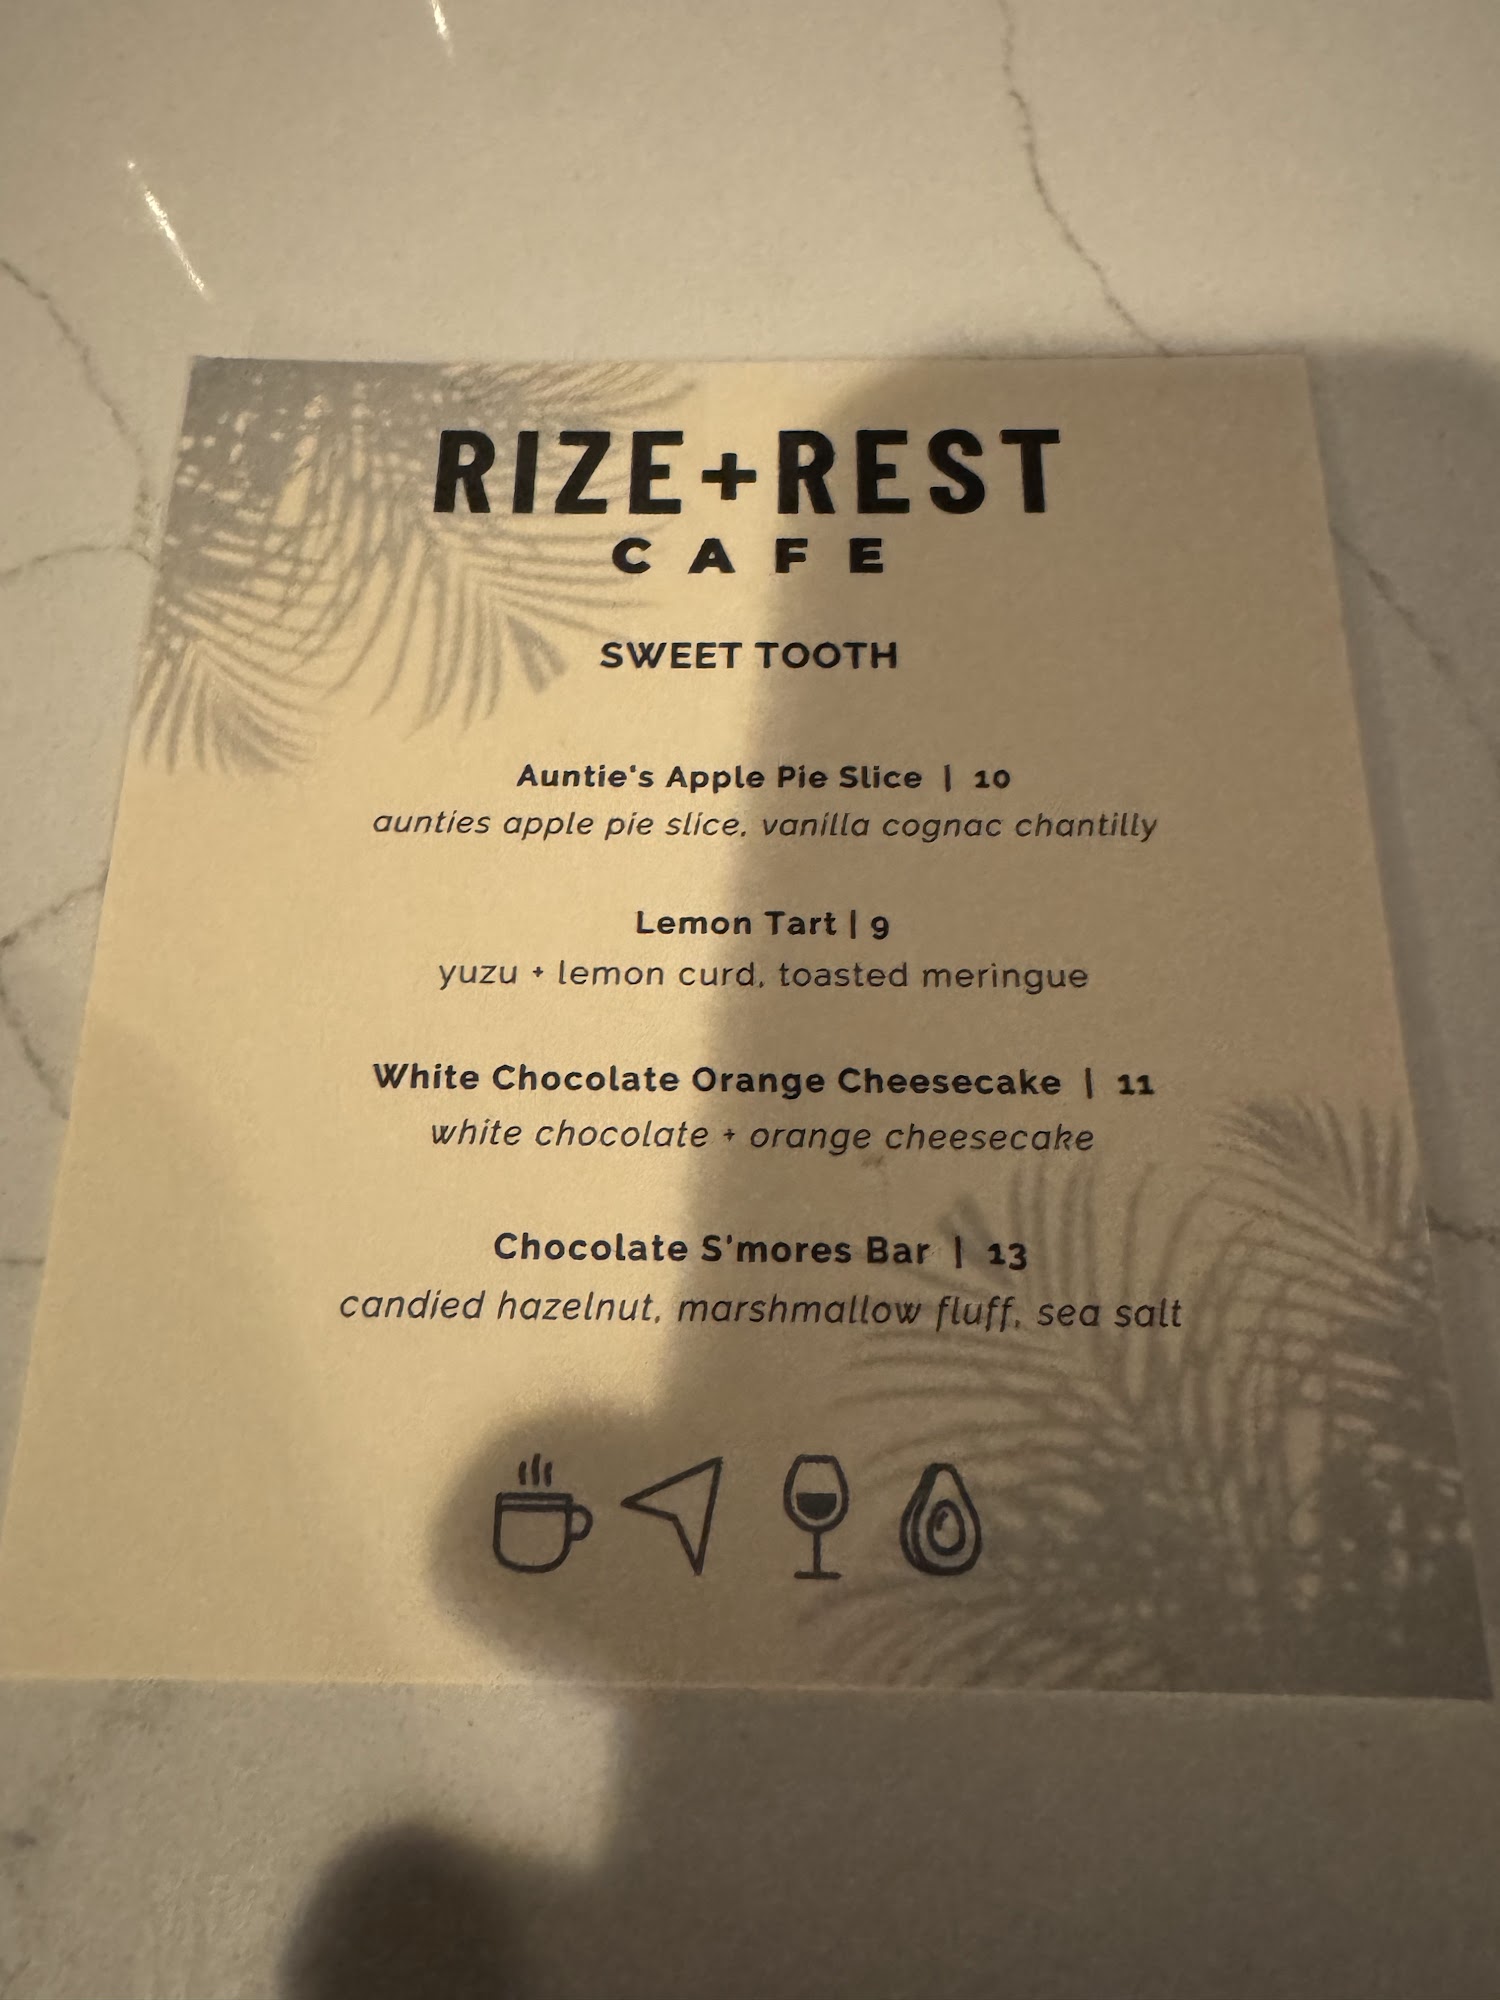 RIZE+REST
CAFE
SWEET TOOTH
Auntie's Apple Pie Slice | 10
aunties apple pie slice, vanilla cognac chantilly
Lemon Tart | 9
yuzu + lemon curd, toasted meringue
White Chocolate Orange Cheesecake | 11
white chocolate + orange cheesecake
Chocolate S'mores Bar | 13
candied hazelnut, marshmallow fluff, sea salt